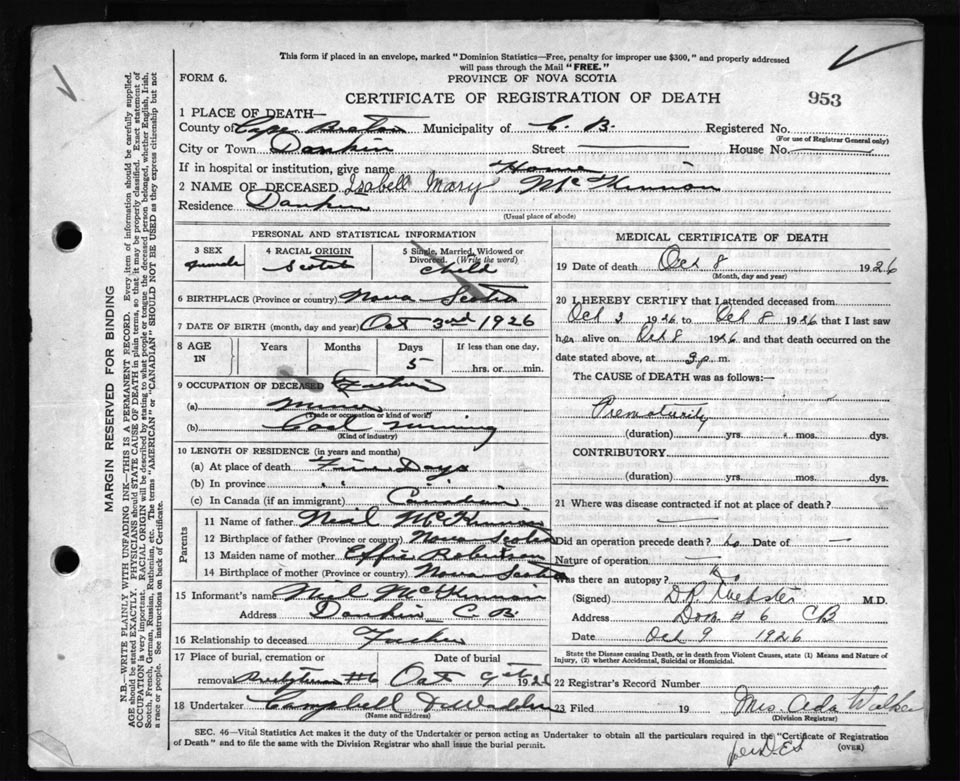 This form if placed in an envelope, marked "Dominion Statistics—Free, penalty for improper use $300," and properly addressed
will pass through the Mail "FREE."
FORM 6.
PROVINCE OF NOVA SCOTIA
CERTIFICATE OF REGISTRATION OF DEATH
953
1 PLACE OF DEATH—
County of Cape Breton Municipality of C. B. Registered No.
(For use of Registrar General only)
City or Town Donkin Street House No.
If in hospital or institution, give name Home
2 NAME OF DECEASED Isabell Mary McKinnon
Residence Donkin
(Usual place of abode)
PERSONAL AND STATISTICAL INFORMATION
3 SEX
Female
4 RACIAL ORIGIN
Scotch
5 Single, Married, Widowed or
Divorced. (Write the word)
Child
6 BIRTHPLACE (Province or country) Nova Scotia
7 DATE OF BIRTH (month, day and year) Oct 3rd 1926
8 AGE
IN
Years
Months
Days
5
If less than one day,
hrs. or min.
9 OCCUPATION OF DECEASED Father
(a) Miner
(Trade or occupation or kind of work)
(b) Coal mining
(Kind of industry)
10 LENGTH OF RESIDENCE (in years and months)
(a) At place of death Five Days
(b) In province " "
(c) In Canada (if an immigrant) Canadian
Parents
11 Name of father Neil McKinnon
12 Birthplace of father (Province or country) Nova Scotia
13 Maiden name of mother Effie Robertson
14 Birthplace of mother (Province or country) Nova Scotia
15 Informant's name Neil McKinnon
Address Donkin C B.
16 Relationship to deceased Father
17 Place of burial, cremation or
removal Presbyterian #6
Date of burial
Oct 9th 1926
18 Undertaker Campbell
(Name and address)
MEDICAL CERTIFICATE OF DEATH
19 Date of death Oct 8 1926
(Month, day and year)
20 I HEREBY CERTIFY that I attended deceased from
Oct 3 1926 to Oct 8 1926 that I last saw
her alive on Oct 8 1926 and that death occurred on the
date stated above, at 3 p. m.
The CAUSE of DEATH was as follows:—
Prematurity
(duration) yrs. mos. dys.
CONTRIBUTORY
(duration) yrs. mos. dys.
21 Where was disease contracted if not at place of death?
Did an operation precede death? no Date of —
Nature of operation —
Was there an autopsy? No
(Signed) Webster M.D.
Address Dom #6 CB
Date Oct 9 1926
State the Disease causing Death, or in death from Violent Causes, state (1) Means and Nature of
Injury, (2) whether Accidental, Suicidal or Homicidal.
22 Registrar's Record Number
23 Filed 19 Mrs. Ada Walker
(Division Registrar)
SEC. 46—Vital Statistics Act makes it the duty of the Undertaker or person acting as Undertaker to obtain all the particulars required in the "Certificate of Registration
of Death" and to file the same with the Division Registrar who shall issue the burial permit.
(OVER)
MARGIN RESERVED FOR BINDING
N.B.—WRITE PLAINLY WITH UNFADING INK—THIS IS A PERMANENT RECORD. Every item of information should be carefully supplied.
AGE should be stated EXACTLY. PHYSICIANS should STATE CAUSE OF DEATH in plain terms, so that it may be properly classified. Exact statement of
OCCUPATION is very important. RACIAL ORIGIN will be described by stating to what people or tongue the deceased person belonged, whether English, Irish,
Scotch, French, German, Russian, Ruthenian, etc. The terms "AMERICAN" or "CANADIAN" SHOULD NOT BE USED as they express citizenship but not
a race or people. See instructions on back of Certificate.